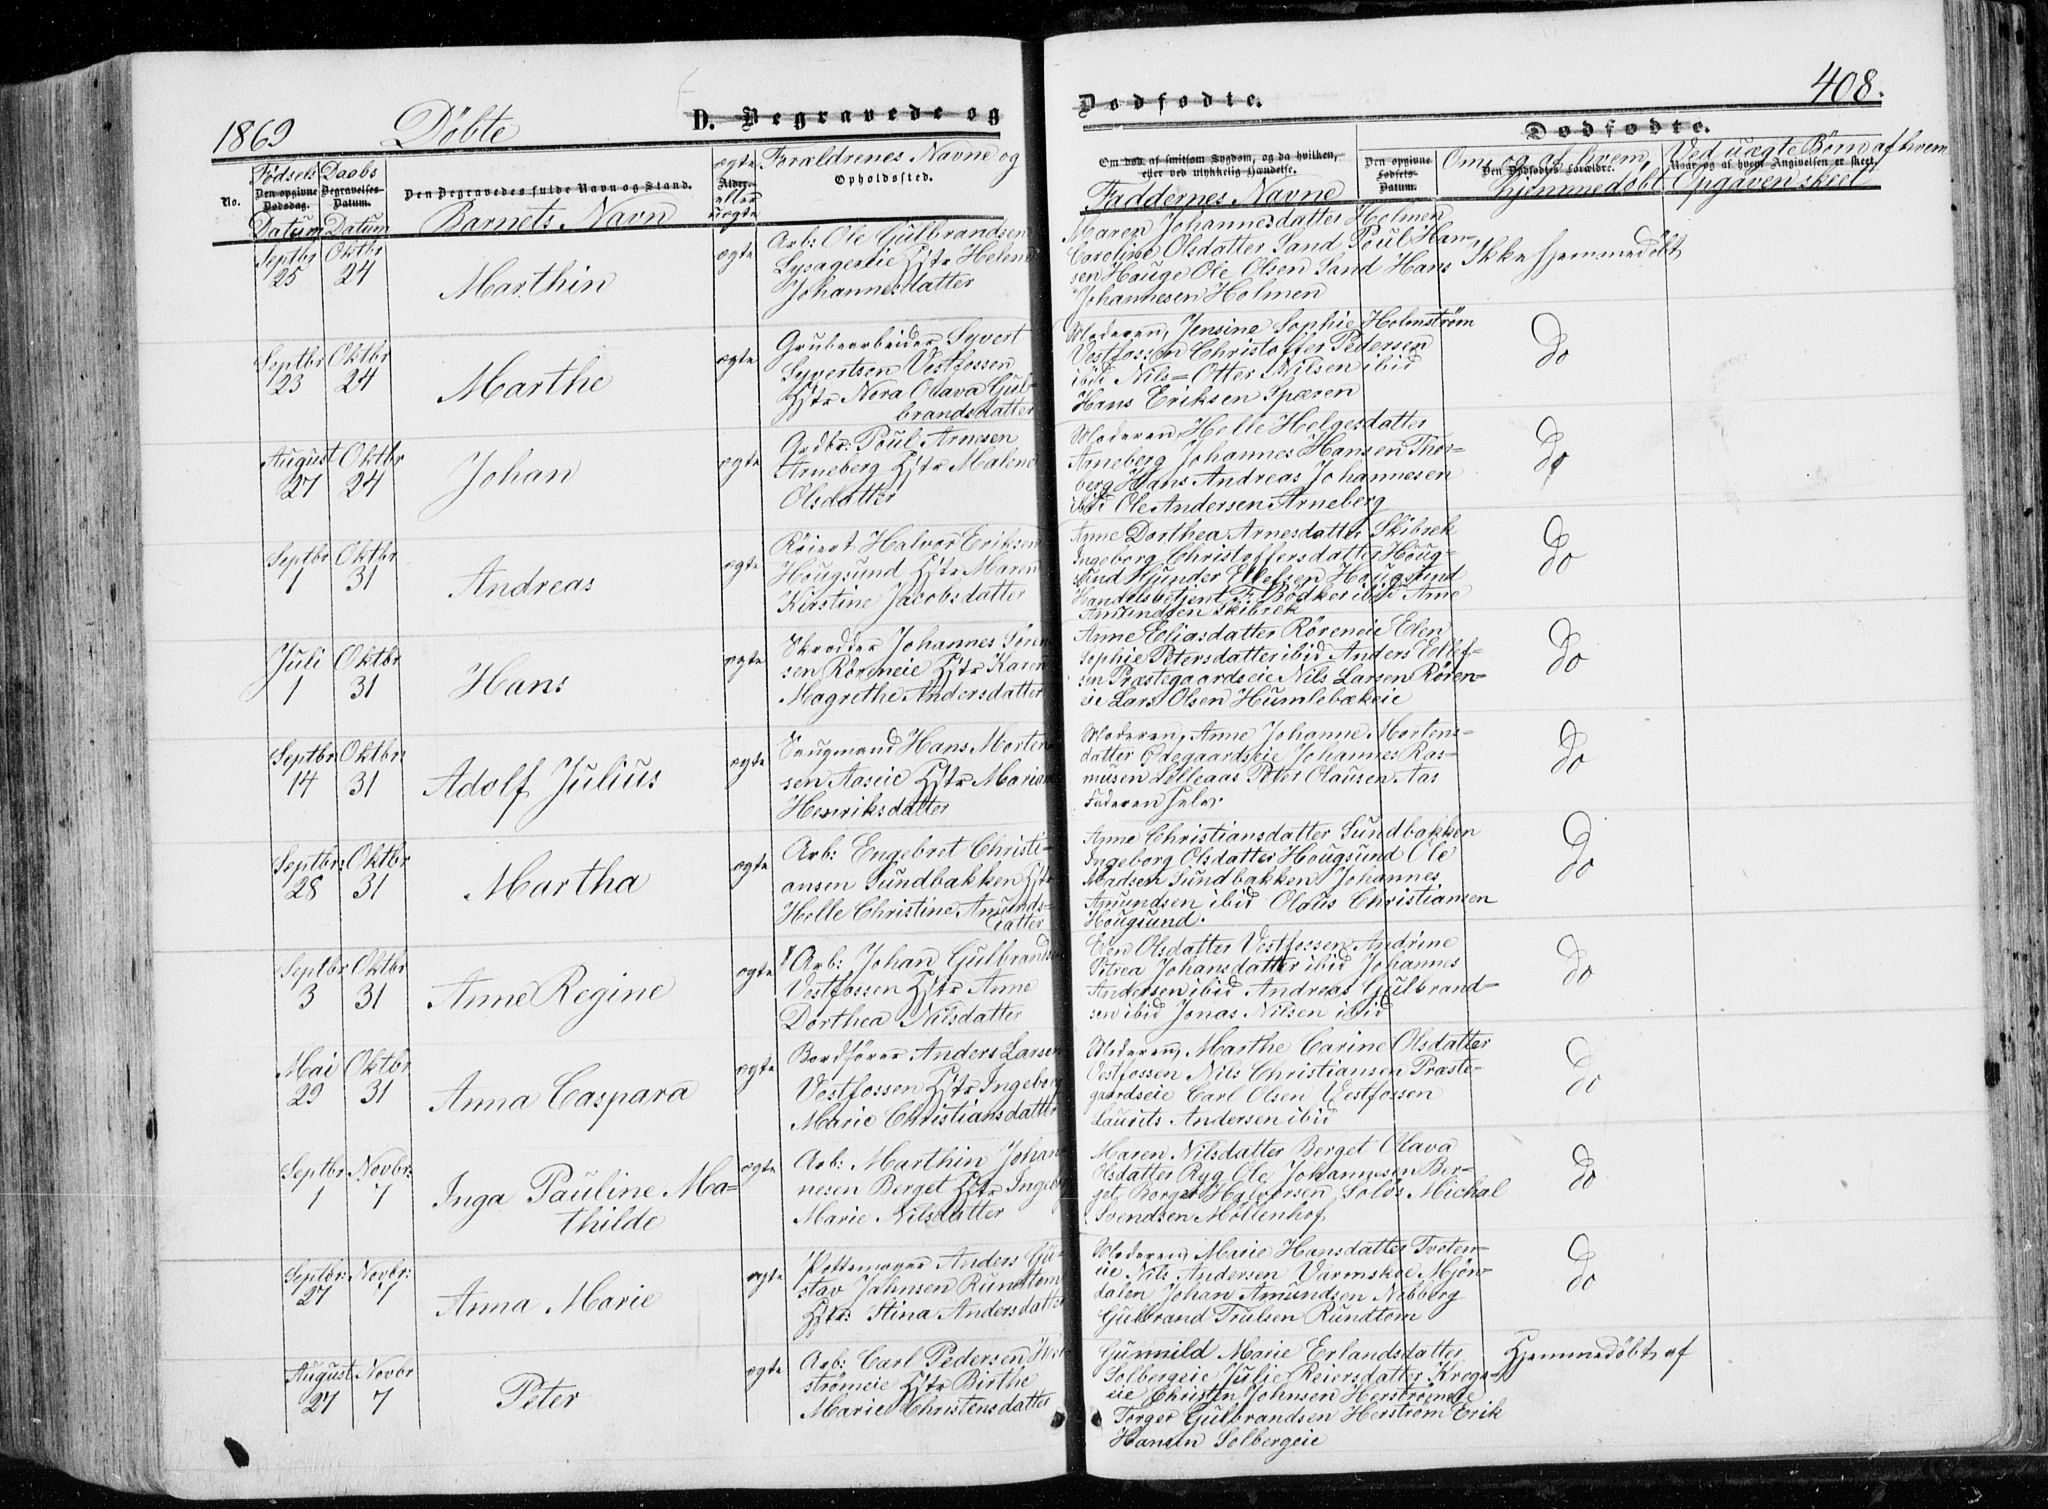 1869 Døbte D. Begravede og
Dødfødte. 408.
Dødfødte.
No.
Fødsels Den opgivne Dødsdag. Datum
Daabs Begravelses-Datum. Datum
Den Begravedes fulde Navn og Stand.
Barnets Navn
ægte Alder. eller uægte
Forældrenes Navne og
Opholdssted.
Om død af smitsom Sygdom, og da hvilken,
eller ved ulykkelig Hændelse.
Faddernes Navne
Den opgivne
Fødsels-
Datum.
Om og af hvem
Den Dødfødtes Forældre.
hjemmedøbt
Ved uægte Børn af hvem
Naar og af hvem Angivelsen er skeet.
Opgaven skeet
Septbr 25
Oktbr 24
Marthin
ægte
Arb: Ole Gulbrandsen
Lysagereie Hstr Helene
Johannesdatter
Maren Johannesdatter Holmen
Caroline Olsdatter Sand Poul Han-
sen Hauge Ole Olsen Sand Hans
Johannesen Holmen
Ikke hjemmedøbt
Septbr 23
Oktbr 24
Marthe
ægte
Grubearbeider Syvert
Syvertsen Vestfossen
Hstr Nora Olava Gul-
brandsdatter
Moderen, Jensine Sophie Holmström
Vestfossen Christoffer Pedersen
ibid Nils Otter Nilsen ibid
Hans Eriksen Spæren
Do
August 27
Oktbr 24
Johan
ægte
Grdbr: Poul Arnesen
Arneberg Hstr Malene
Olsdatter
Moderen, Helle Helgesdatter
Arneberg Johannes Hansen Thor-
berg Hans Andreas Johannesen
ibid Ole Andersen Arneberg
Do
Septbr 1
Oktbr 31
Andreas
ægte
Røiert Halvor Eriksen
Hougsund Hstr Maren
Kirstine Jacobsdatter
Anne Dorthea Arnesdatter Skibrek
Ingeborg Christoffersdatter Houg-
sund Gunder Ellefsen Hougsund
Handelsbetjent F: Bödker ibid Arne
Amundsen Skibrek
Do
Juli 1
Oktbr 31
Hans
ægte
Skrædder Johannes Sören
sen Röreneie Hstr Karen
Magrethe Andersdatter
Anne Eliasdatter Röreneie Elen
Sophie Petersdatter ibid Anders Ellef-
sen Præstegaardseie Nils Larsen Rören-
eie Lars Olsen Humlebækeie
Do
Septbr 14
Oktbr: 31
Adolf Julius
ægte
Saugmand Hans Morten
sen Aaseie Hstr Mariane
Henriksdatter
Moderen, Anne Johanne Mortens-
datter Ødegaardseie Johannes Ras-
musen Lilleaas Peter Olausen Aas
Faderen selv.
Do
Septbr: 28
Oktbr 31
Martha
ægte
Arb: Engebret Christi-
ansen Sundbakken Hstr
Helle Christine Amunds-
datter
Anne Christiansdatter Sundbakken
Ingeborg Olsdatter Hougsund Ole
Madsen Sundbakken Johannes
Amundsen ibid Olaus Christiansen
Hougsund.
Do
Septbr 3
Oktbr 31
Anne Regine
ægte
Arb: Johan Gulbrands
Vestfossen Hstr Anne
Dorthea Nilsdatter
Elen Olsdatter Vestfossen Andrine
Petrea Johansdatter ibid Johannes
Andersen ibid Andreas Gulbrand-
sen ibid Jonas Nilsen ibid
Do
Mai 29
Oktbr 31
Anna Caspara
ægte
Bordfører Anders Larsen
Vestfossen Hstr Ingeborg
Marie Christiansdatter
Moderen, Marthe Carine Olsdatter
Vestfossen Nils Christiansen Præste-
gaardseie Carl Olsen Vestfossen
Laurits Andersen ibid
Do
Septbr 1
Novbr: 7
Inga Pauline Ma-
thilde
ægte
Arb: Marthin Johan
nesen Berget Hstr Ingeborg
Marie Nilsdatter
Maren Nilsdatter Berget Olava
Olsdatter Ryg Ole Johannesen Ber-
get Borger Halvorsen Solds Michal
Svendsen Möllenhof
Do
Septbr: 27
Novbr: 7
Anna Marie
ægte
Pottemager Anders Gu-
stav Jahnsen Rundtom
Hstr: Stina Andersdatter
Moderen, Marie Hansdatter Tveten-
eie Nils Andersen Varmskoe Mjön-
dalen Johan Amundsen Nebberg
Gulbrand Trulsen Rundtom
Do
August 27
Novbr 7
Peter
ægte
Arb: Carl Pedersen Her
strömeie Hstr Birthe
Marie Christensdatter
Gunnild Marie Erlandsdatter
Solbergeie Julie Reiersdatter Krogs-
eie Christen Johnsen Herströmeie
Torger Gulbrandsen Herström Erik
Hansen Solbergeie
Hjemmedøbt af